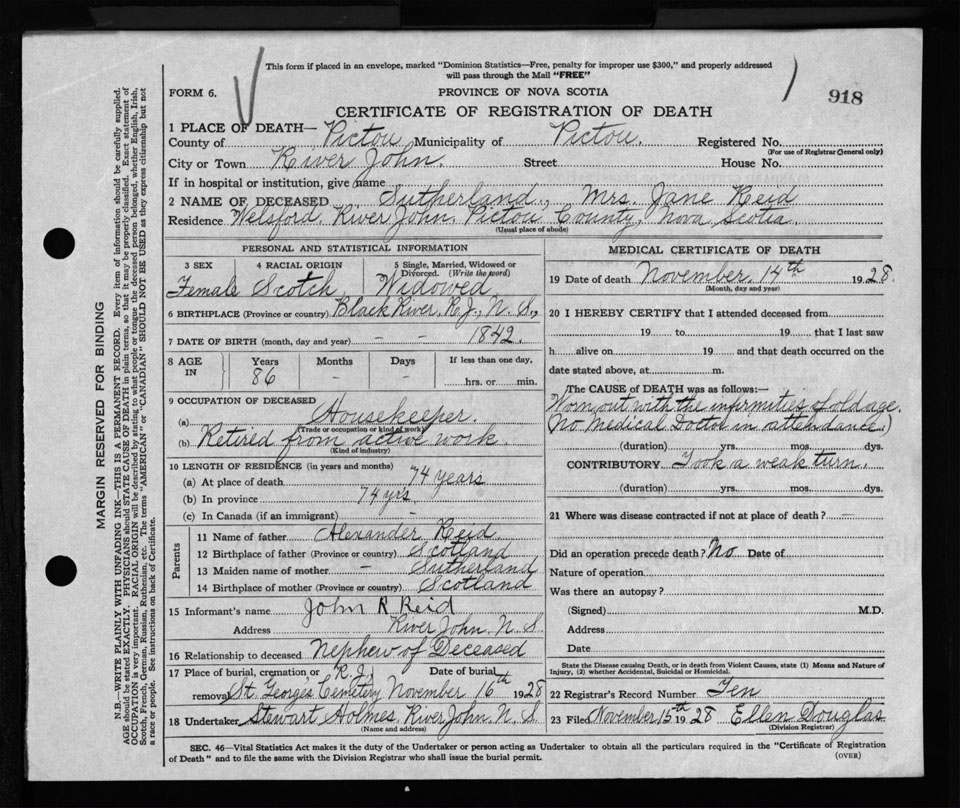 This form if placed in an envelope, marked "Dominion Statistics—Free, penalty for improper use $300," and properly addressed
will pass through the Mail "FREE"
FORM 6.
PROVINCE OF NOVA SCOTIA
918
CERTIFICATE OF REGISTRATION OF DEATH
1 PLACE OF DEATH—
County of Pictou Municipality of Pictou. Registered No.
(For use of Registrar General only)
City or Town River John. Street House No.
If in hospital or institution, give name
2 NAME OF DECEASED Sutherland, Mrs. Jane Reid
Residence Welsford, River John, Pictou County, Nova Scotia
(Usual place of abode)
PERSONAL AND STATISTICAL INFORMATION
3 SEX 4 RACIAL ORIGIN 5 Single, Married, Widowed or Divorced. (Write the word)
Female Scotch Widowed
6 BIRTHPLACE (Province or country) Black River, R.J., N.S.,
7 DATE OF BIRTH (month, day and year) – – 1842.
8 AGE IN Years Months Days If less than one day,
86 – – hrs. or min.
9 OCCUPATION OF DECEASED
(a) Housekeeper.
(Trade or occupation or kind of work)
(b) Retired from active work.
(Kind of industry)
10 LENGTH OF RESIDENCE (in years and months)
(a) At place of death 74 years
(b) In province 74 yrs
(c) In Canada (if an immigrant) –
Parents
11 Name of father Alexander Reid
12 Birthplace of father (Province or country) Scotland
13 Maiden name of mother – Sutherland
14 Birthplace of mother (Province or country) Scotland
15 Informant's name John R Reid
Address River John N.S
16 Relationship to deceased Nephew of Deceased
17 Place of burial, cremation or R.J. Date of burial
removal St. Georges Cemetery November 16th 1928
18 Undertaker Stewart Holmes, River John, N.S.
(Name and address)
MEDICAL CERTIFICATE OF DEATH
19 Date of death November, 14th 1928.
(Month, day and year)
20 I HEREBY CERTIFY that I attended deceased from
19 to 19 that I last saw
h alive on 19 and that death occurred on the
date stated above, at m.
The CAUSE of DEATH was as follows:—
Worn out with the infirmities of old age.
(No Medical Doctor in attendance.)
(duration) yrs. mos. dys.
CONTRIBUTORY Took a weak turn.
(duration) yrs. mos. dys.
21 Where was disease contracted if not at place of death? —
Did an operation precede death? No Date of
Nature of operation
Was there an autopsy?
(Signed) M.D.
Address
Date
State the Disease causing Death, or in death from Violent Causes, state (1) Means and Nature of
Injury, (2) whether Accidental, Suicidal or Homicidal.
22 Registrar's Record Number Ten
23 Filed November 15th 1928 Ellen Douglas
(Division Registrar)
SEC. 46—Vital Statistics Act makes it the duty of the Undertaker or person acting as Undertaker to obtain all the particulars required in the "Certificate of Registration
of Death" and to file the same with the Division Registrar who shall issue the burial permit.
(OVER)
MARGIN RESERVED FOR BINDING
N.B.—WRITE PLAINLY WITH UNFADING INK—THIS IS A PERMANENT RECORD. Every item of information should be carefully supplied.
AGE should be stated EXACTLY. PHYSICIANS should STATE CAUSE OF DEATH in plain terms, so that it may be properly classified. Exact statement of
OCCUPATION is very important. RACIAL ORIGIN will be described by stating to what people or tongue the deceased person belonged, whether English, Irish,
Scotch, French, German, Russian, Ruthenian, etc. The terms "AMERICAN" or "CANADIAN" SHOULD NOT BE USED as they express citizenship but not
a race or people. See instructions on back of Certificate.